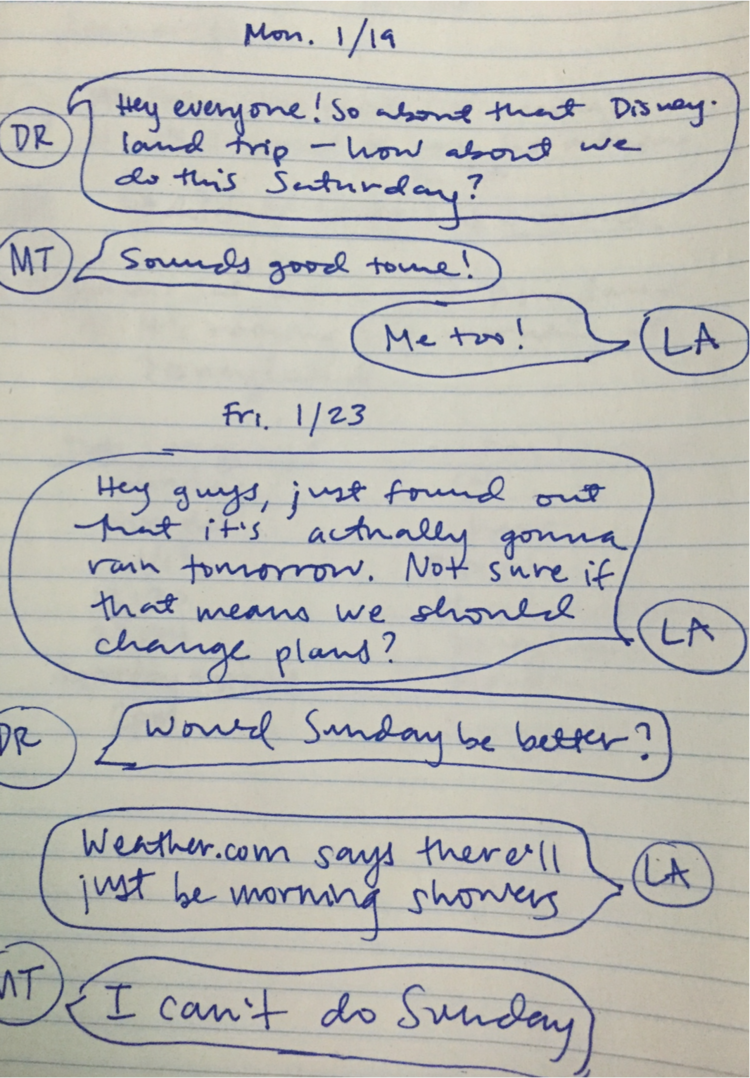 Mon. 1/19
Hey everyone! So about that Disney-
DR
land trip – how about we
do this Saturday?
MT
Sounds good to me!
Me too!
LA
Fri. 1/23
Hey guys, just found out
that it's actually gonna
rain tomorrow. Not sure if
that means we should
LA
change plans?
DR
Would Sunday be better?
Weather.com says there'll
LA
just be morning showers
MT
I can't do Sunday